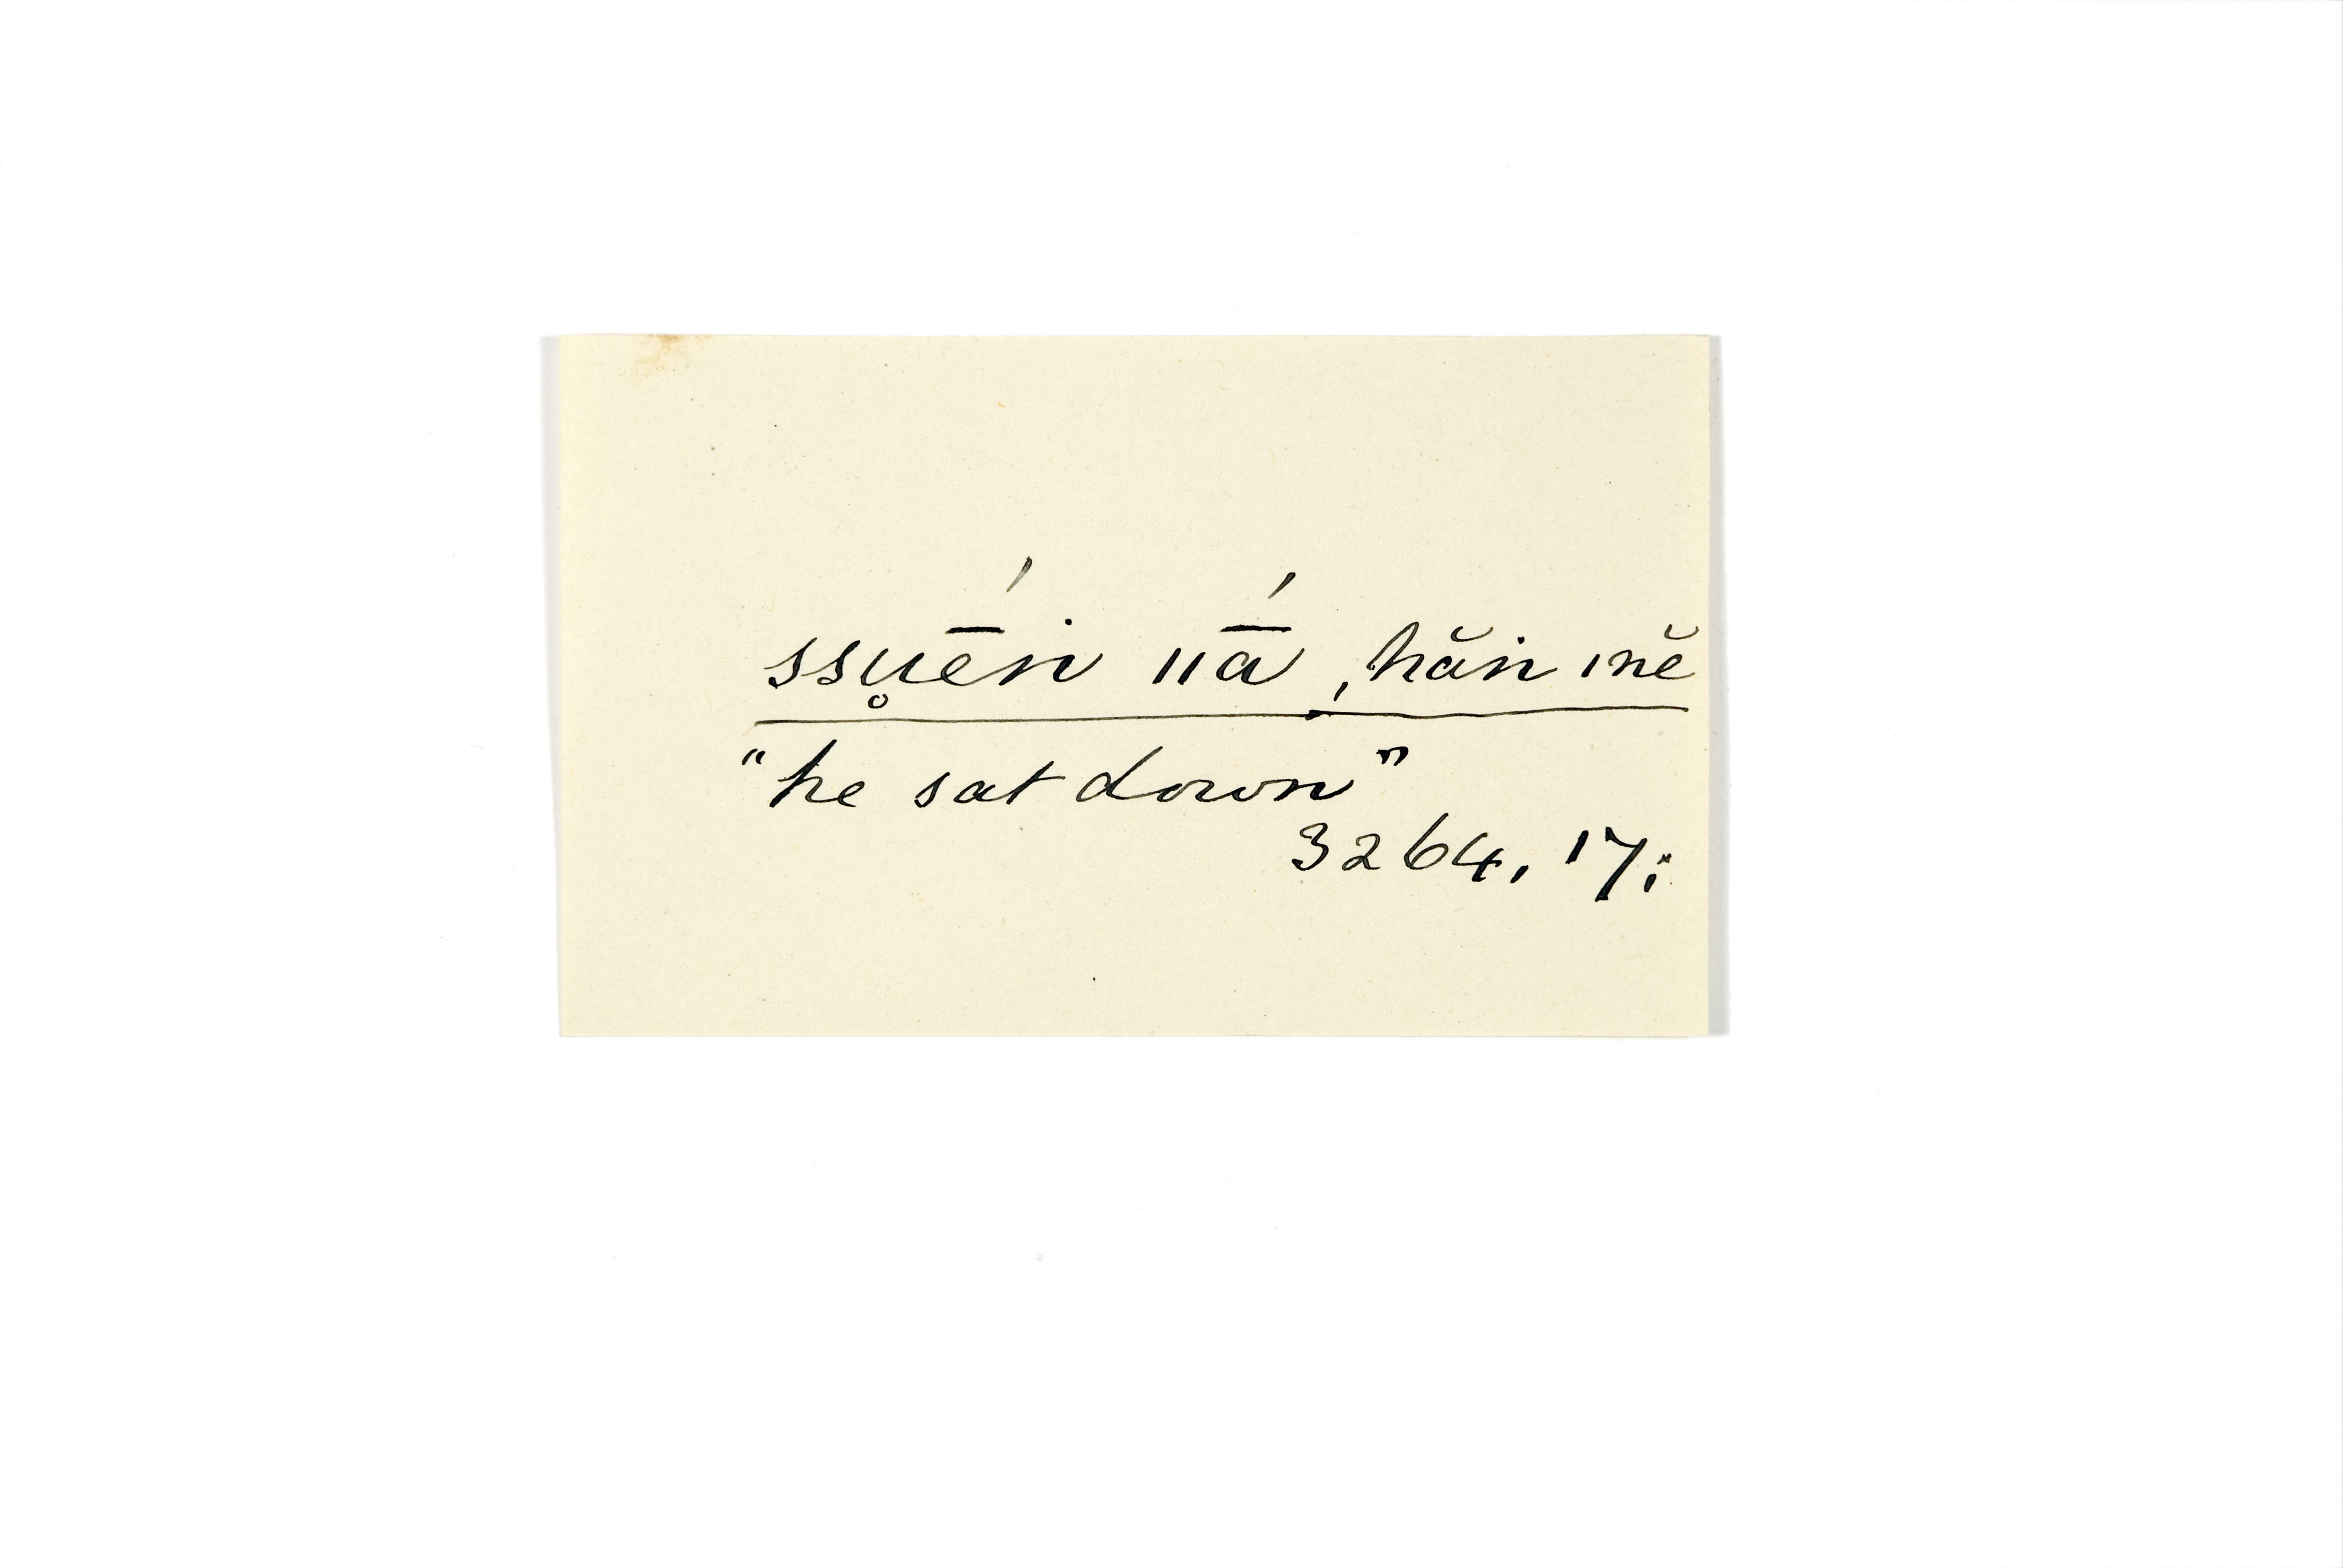 ssu̥ḗn ııā́ , hăn ınĕ
"he sat down"
3264, 17;